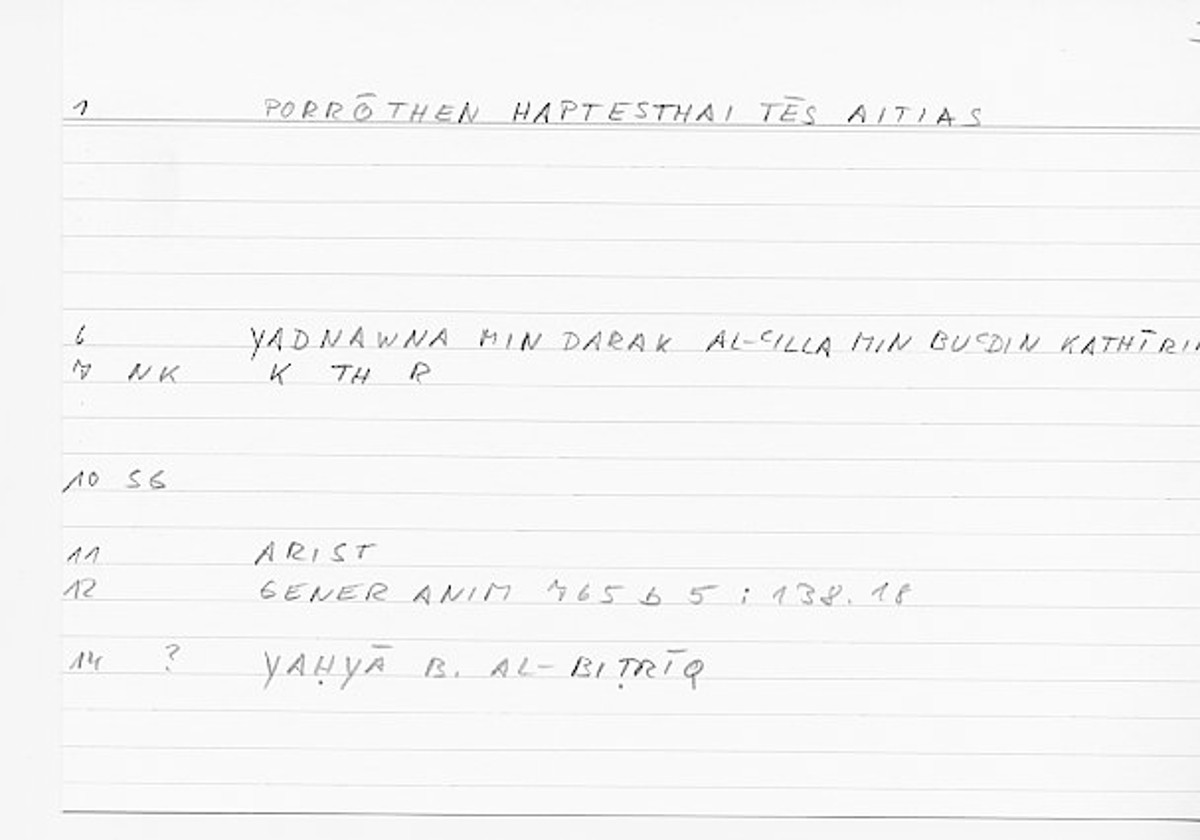 1 PORRŌTHEN HAPTESTHAI TĒS AITIAS
6 YADNAWNA MIN DARAK AL-ʿILLA MIN BUʿDIN KATHĪRI
7 NK K TH R
10 SG
11 ARIST
12 GENER ANIM 765 b 5 : 138.18
14 ? YAḤYĀ B. AL-BIṬRĪQ